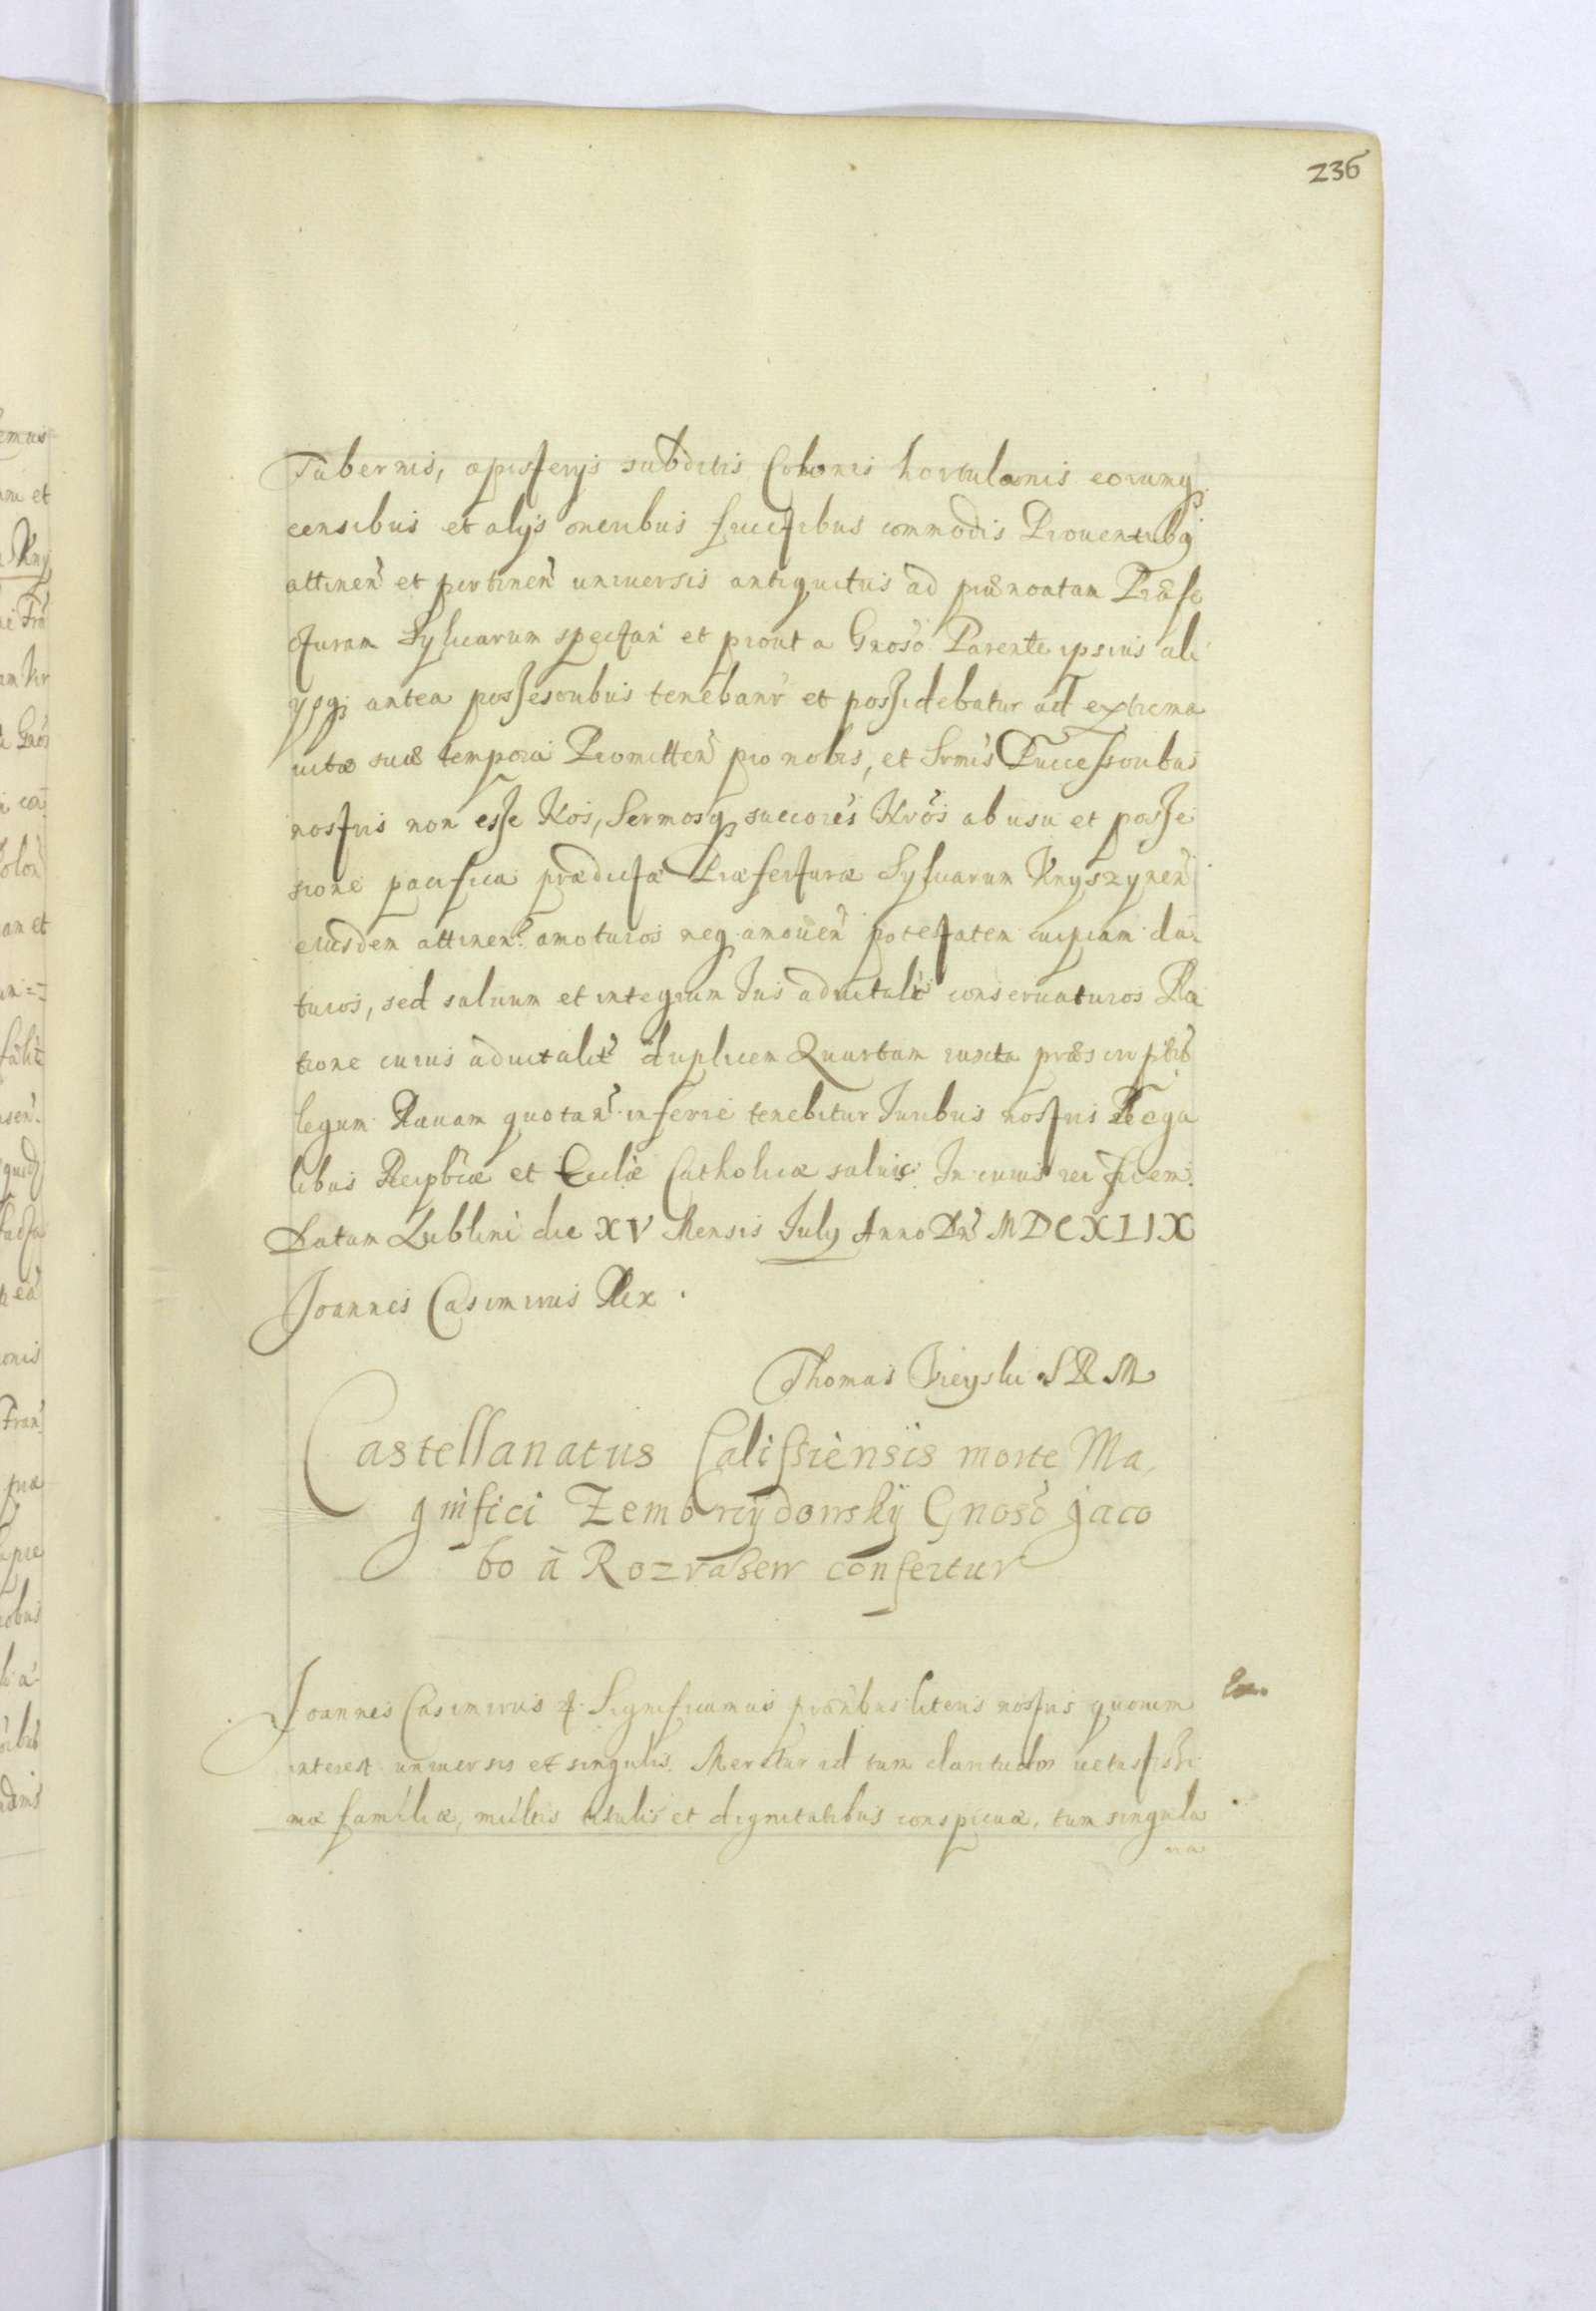 236
Tabernis, apisterijs subditis Colonis hortulanis eorumq3
censibus et alijs oneribus fructibus commodis Prouentibq3
attinen̄ et pertinen̄ uniuersis antiquitus ad prænoatam Præfe
cturam Syluarum spectan̄ et prout a Gnoso Parente ipsius ali
ysq3 antea possesoribus tenebanr̄ et possidebatur ad extrema
uitæ suæ tempora Promitten̄ pro nobis, et Srmis Successoribus
nostris non esse Nos, Sermosq3 succores Nrōs ab usu et posse
sione pacifica prædictæ Præfecturæ Syluarum Knyszynen̄
eiusdem attinen: amoturos neq3 amouen̄ potestatem cuipiam da
turos, sed saluum et integrum Jus aduitalit̄ conseruaturos Ra
tione cuius aduitalit̄ duplicem Quartam iuxta præscriptū
legum Rauam quotan̄ inferre tenebitur Juribus nostris Rega
libus Reipbcæ et Ecclæ Catholicæ saluis. In cuius rei fidem.
Datum Lublini die XV Mensis July Anno Dn̄i MDCXLIX
Joannes Casimirus Rex.
Thomas SRM
Castellanatus Calissiensis morte Ma
gnifici Zembrzydowskij Gnoso Jaco
bo à Rozrazew confertur
Joannes Casimirus 4. Significamus præntibus literis nostris quorum
interest uniuersis et singulis. Meretur id tum claritudo uetustissi
mæ familiæ, multis titulis et dignitatibus conspicuæ, tum singula
ria